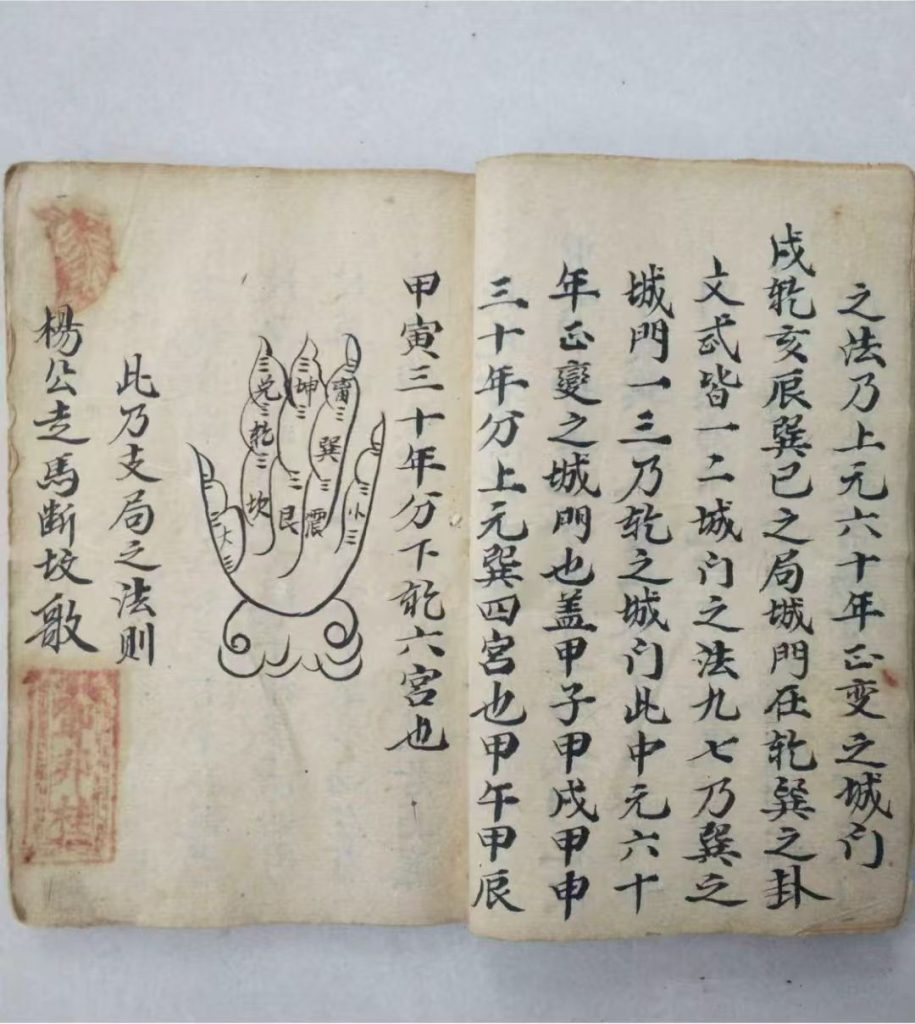 之法乃上元六十年正变之城门
戌乾亥辰巽巳之局城門在乾巽之卦
文武皆一二城门之法九七乃巽之
城門一三乃乾之城门此中元六十
年正變之城門也盖甲子甲戌甲申
三十年分上元巽四宮也甲午甲辰
甲寅三十年分下乾六宮也
巽
小
坤
艮
震
兑
乾
坎
大
此乃支局之法则
楊公走馬断坟歌